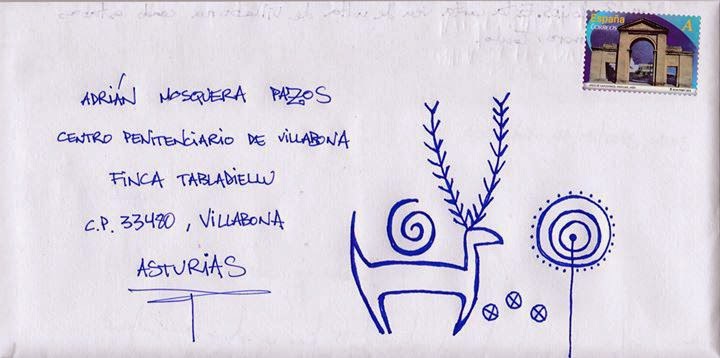 España
CORREOS
A
ADRIÁN MOSQUERA PAZOS
CENTRO PENITENCIARIO DE VILLABONA
FINCA TABLADIELLU
C.P. 33480, VILLABONA
ASTURIAS